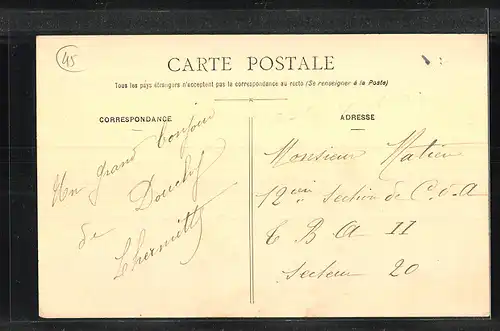 45
CARTE POSTALE
Tous les pays étrangers n'acceptent pas la correspondance au recto (Se renseigner à la Poste)
CORRESPONDANCE
Un grand bonjour
de Douchy
Lhermitte
ADRESSE
Monsieur Matieu
12eme Section de C.O.A
C B A II
Secteur 20